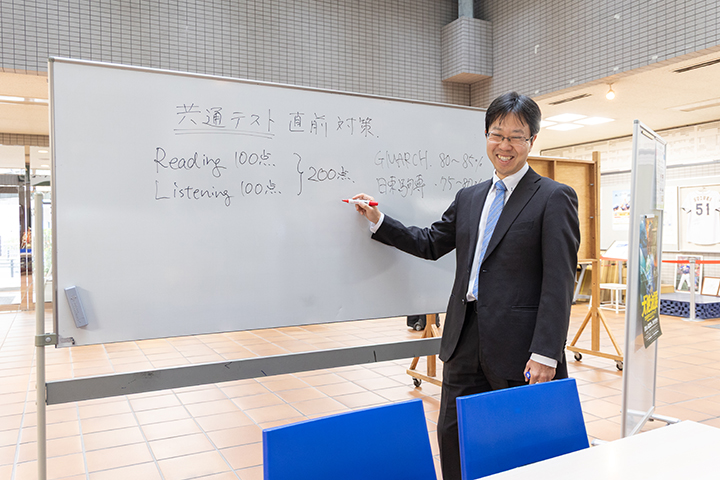 共通テスト 直前対策.
Reading 100点.
Listening 100点.
200点.
GMARCH. 80～85%
日東駒専. 75～80
51